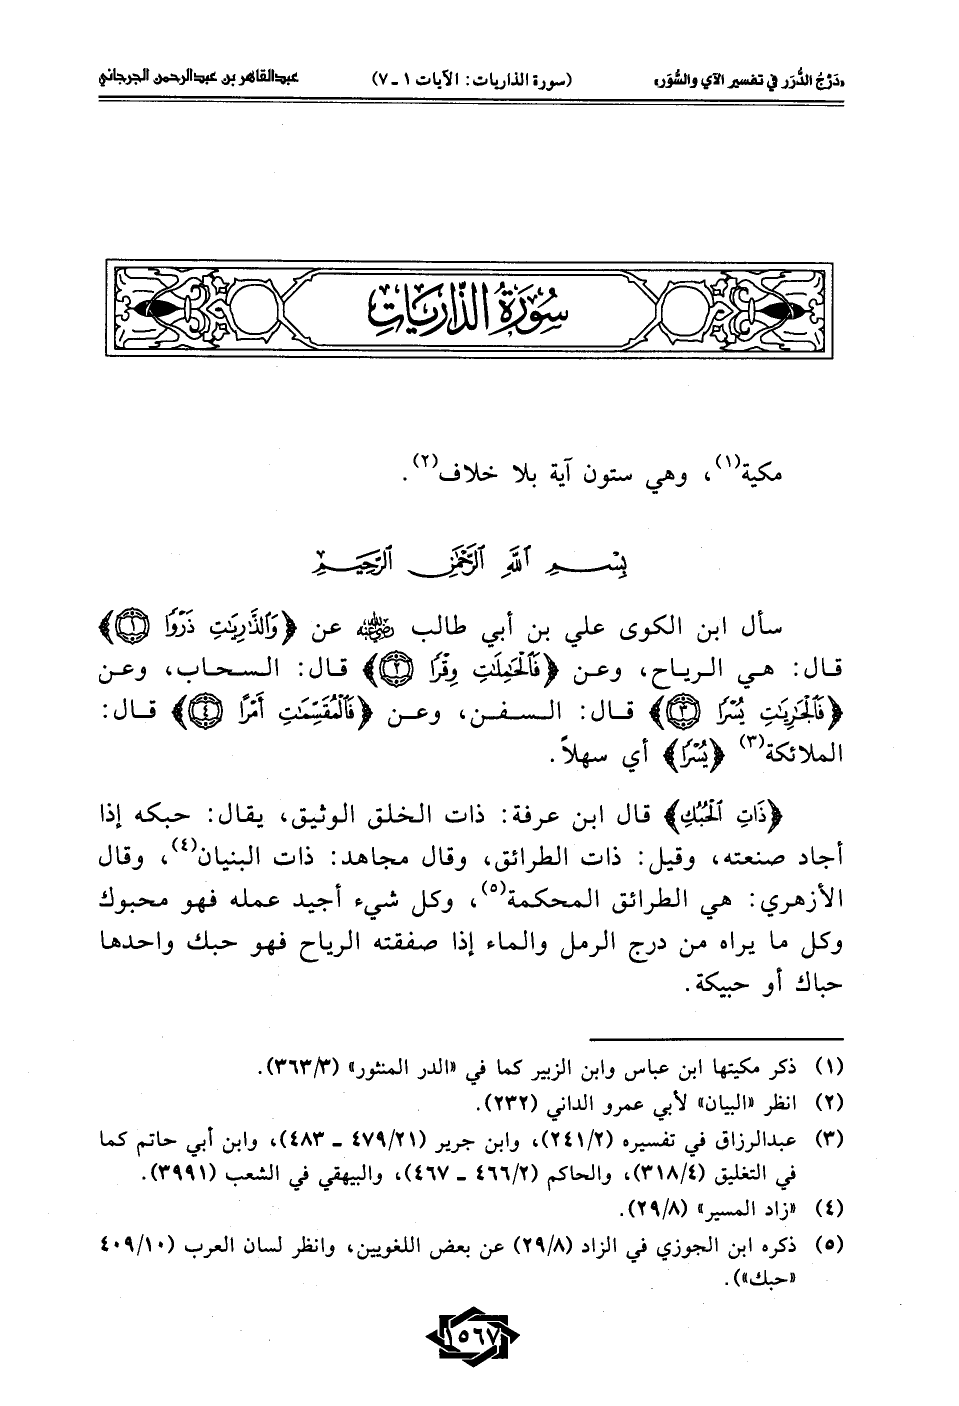 «دَرْجُ الدُّرَر في تفسير الآي والسُّوَر» (سورة الذاريات: الآيات ١ ـ ٧) عبدالقاهر بن عبدالرحمن الجرجاني
سُورَةُ الذَّارِيَاتِ
مكية(١)، وهي ستون آية بلا خلاف(٢).
بِسْمِ ٱللَّهِ ٱلرَّحْمَٰنِ ٱلرَّحِيمِ
سأل ابن الكوى علي بن أبي طالب رضي الله عنه عن ﴿وَٱلذَّٰرِيَٰتِ ذَرْوًا ١﴾
قال: هي الرياح، وعن ﴿فَٱلْحَٰمِلَٰتِ وِقْرًا ٢﴾ قال: السحاب، وعن
﴿فَٱلْجَٰرِيَٰتِ يُسْرًا ٣﴾ قال: السفن، وعن ﴿فَٱلْمُقَسِّمَٰتِ أَمْرًا ٤﴾ قال:
الملائكة(٣) ﴿يُسْرًا﴾ أي سهلاً.
﴿ذَاتِ ٱلْحُبُكِ﴾ قال ابن عرفة: ذات الخلق الوثيق، يقال: حبكه إذا
أجاد صنعته، وقيل: ذات الطرائق، وقال مجاهد: ذات البنيان(٤)، وقال
الأزهري: هي الطرائق المحكمة(٥)، وكل شيء أجيد عمله فهو محبوك
وكل ما يراه من درج الرمل والماء إذا صفقته الرياح فهو حبك واحدها
حباك أو حبيكة.
(١) ذكر مكيتها ابن عباس وابن الزبير كما في «الدر المنثور» (٣٦٣/٣).
(٢) انظر «البيان» لأبي عمرو الداني (٢٣٢).
(٣) عبدالرزاق في تفسيره (٢٤١/٢)، وابن جرير (٤٧٩/٢١ ـ ٤٨٣)، وابن أبي حاتم كما
في التغليق (٣١٨/٤)، والحاكم (٤٦٦/٢ ـ ٤٦٧)، والبيهقي في الشعب (٣٩٩١).
(٤) «زاد المسير» (٢٩/٨).
(٥) ذكره ابن الجوزي في الزاد (٢٩/٨) عن بعض اللغويين، وانظر لسان العرب (٤٠٩/١٠
«حبك»).
١٥٦٧